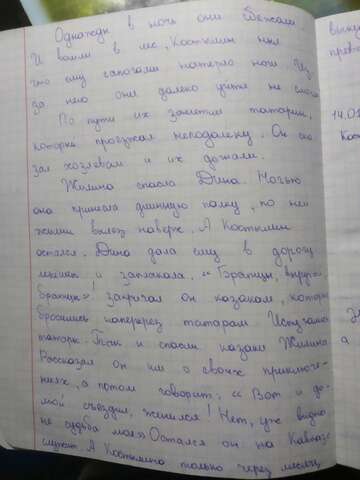 Однажды в ночи они бежали
И вошли в лес, Костылин ныл
что ему сапогами натерло ноги. Из
за него они далеко уйти не смогли
По пути их заметил татарин,
который проезжал неподалёку. Он ска
зал хозяевам и их догнали.
Жилина спасла Дина. Ночью
она принесла длинную палку, по ней
Жилин вылез наверх. А Костылин
остался. Дина дала ему в дорогу
лепёшек и заплакала. "Братцы, выручай
братцы"! закричал он казакам, которые
бросились наперерез татарам Испугались
татары. Так и спасли казаки Жилина
Рассказал он им о своих приключе-
ниях, а потом говорит: "Вот и до-
мой съездил, женился! Нет, уж видно
не судьба моя" Остался он на Кавказе
служить. А Костылина только через месяц
выку
14.01
Кост
а